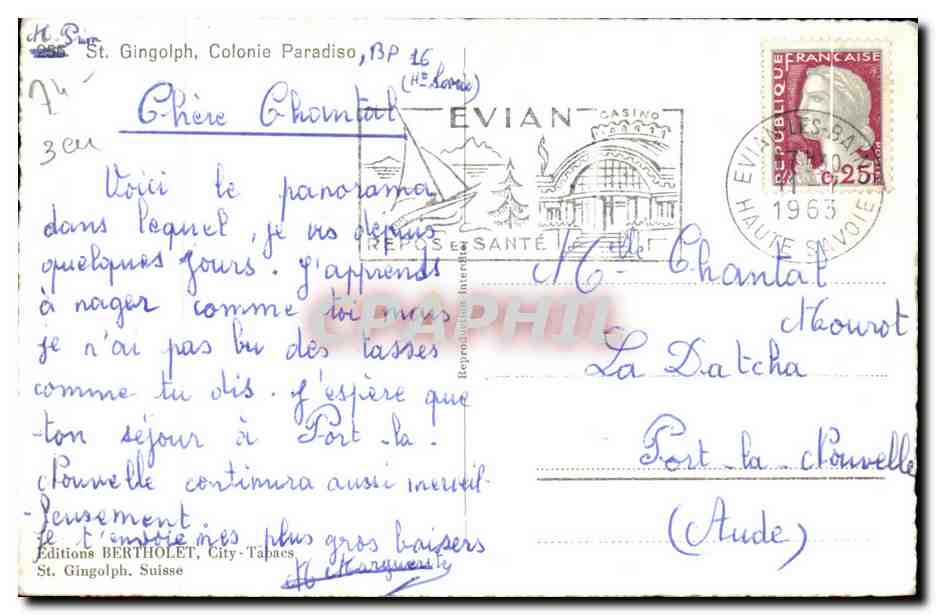 255 St. Gingolph, Colonie Paradiso, BP 16
(Hte Savoie)
Chère Chantal
Voici le panorama
dans lequel je vis depuis
quelques jours. J'apprends
à nager comme toi mais
je n'ai pas bu des tasses
comme tu dis. J'espère que
ton séjour à Port-la-
Nouvelle continura aussi merveil-
leusement.
je t'envoie mes plus gros baisers
M Marguerite
Editions BERTHOLET, City-Tabacs
St. Gingolph. Suisse
Reproduction Interdite
EVIAN
CASINO
REPOS ET SANTÉ
EVIAN-LES-BAINS
1963
HAUTE SAVOIE
REPUBLIQUE FRANÇAISE
0,25F
Melle Chantal
Mourot
La Datcha
Port-la-Nouvelle
(Aude)
CPAPHIL